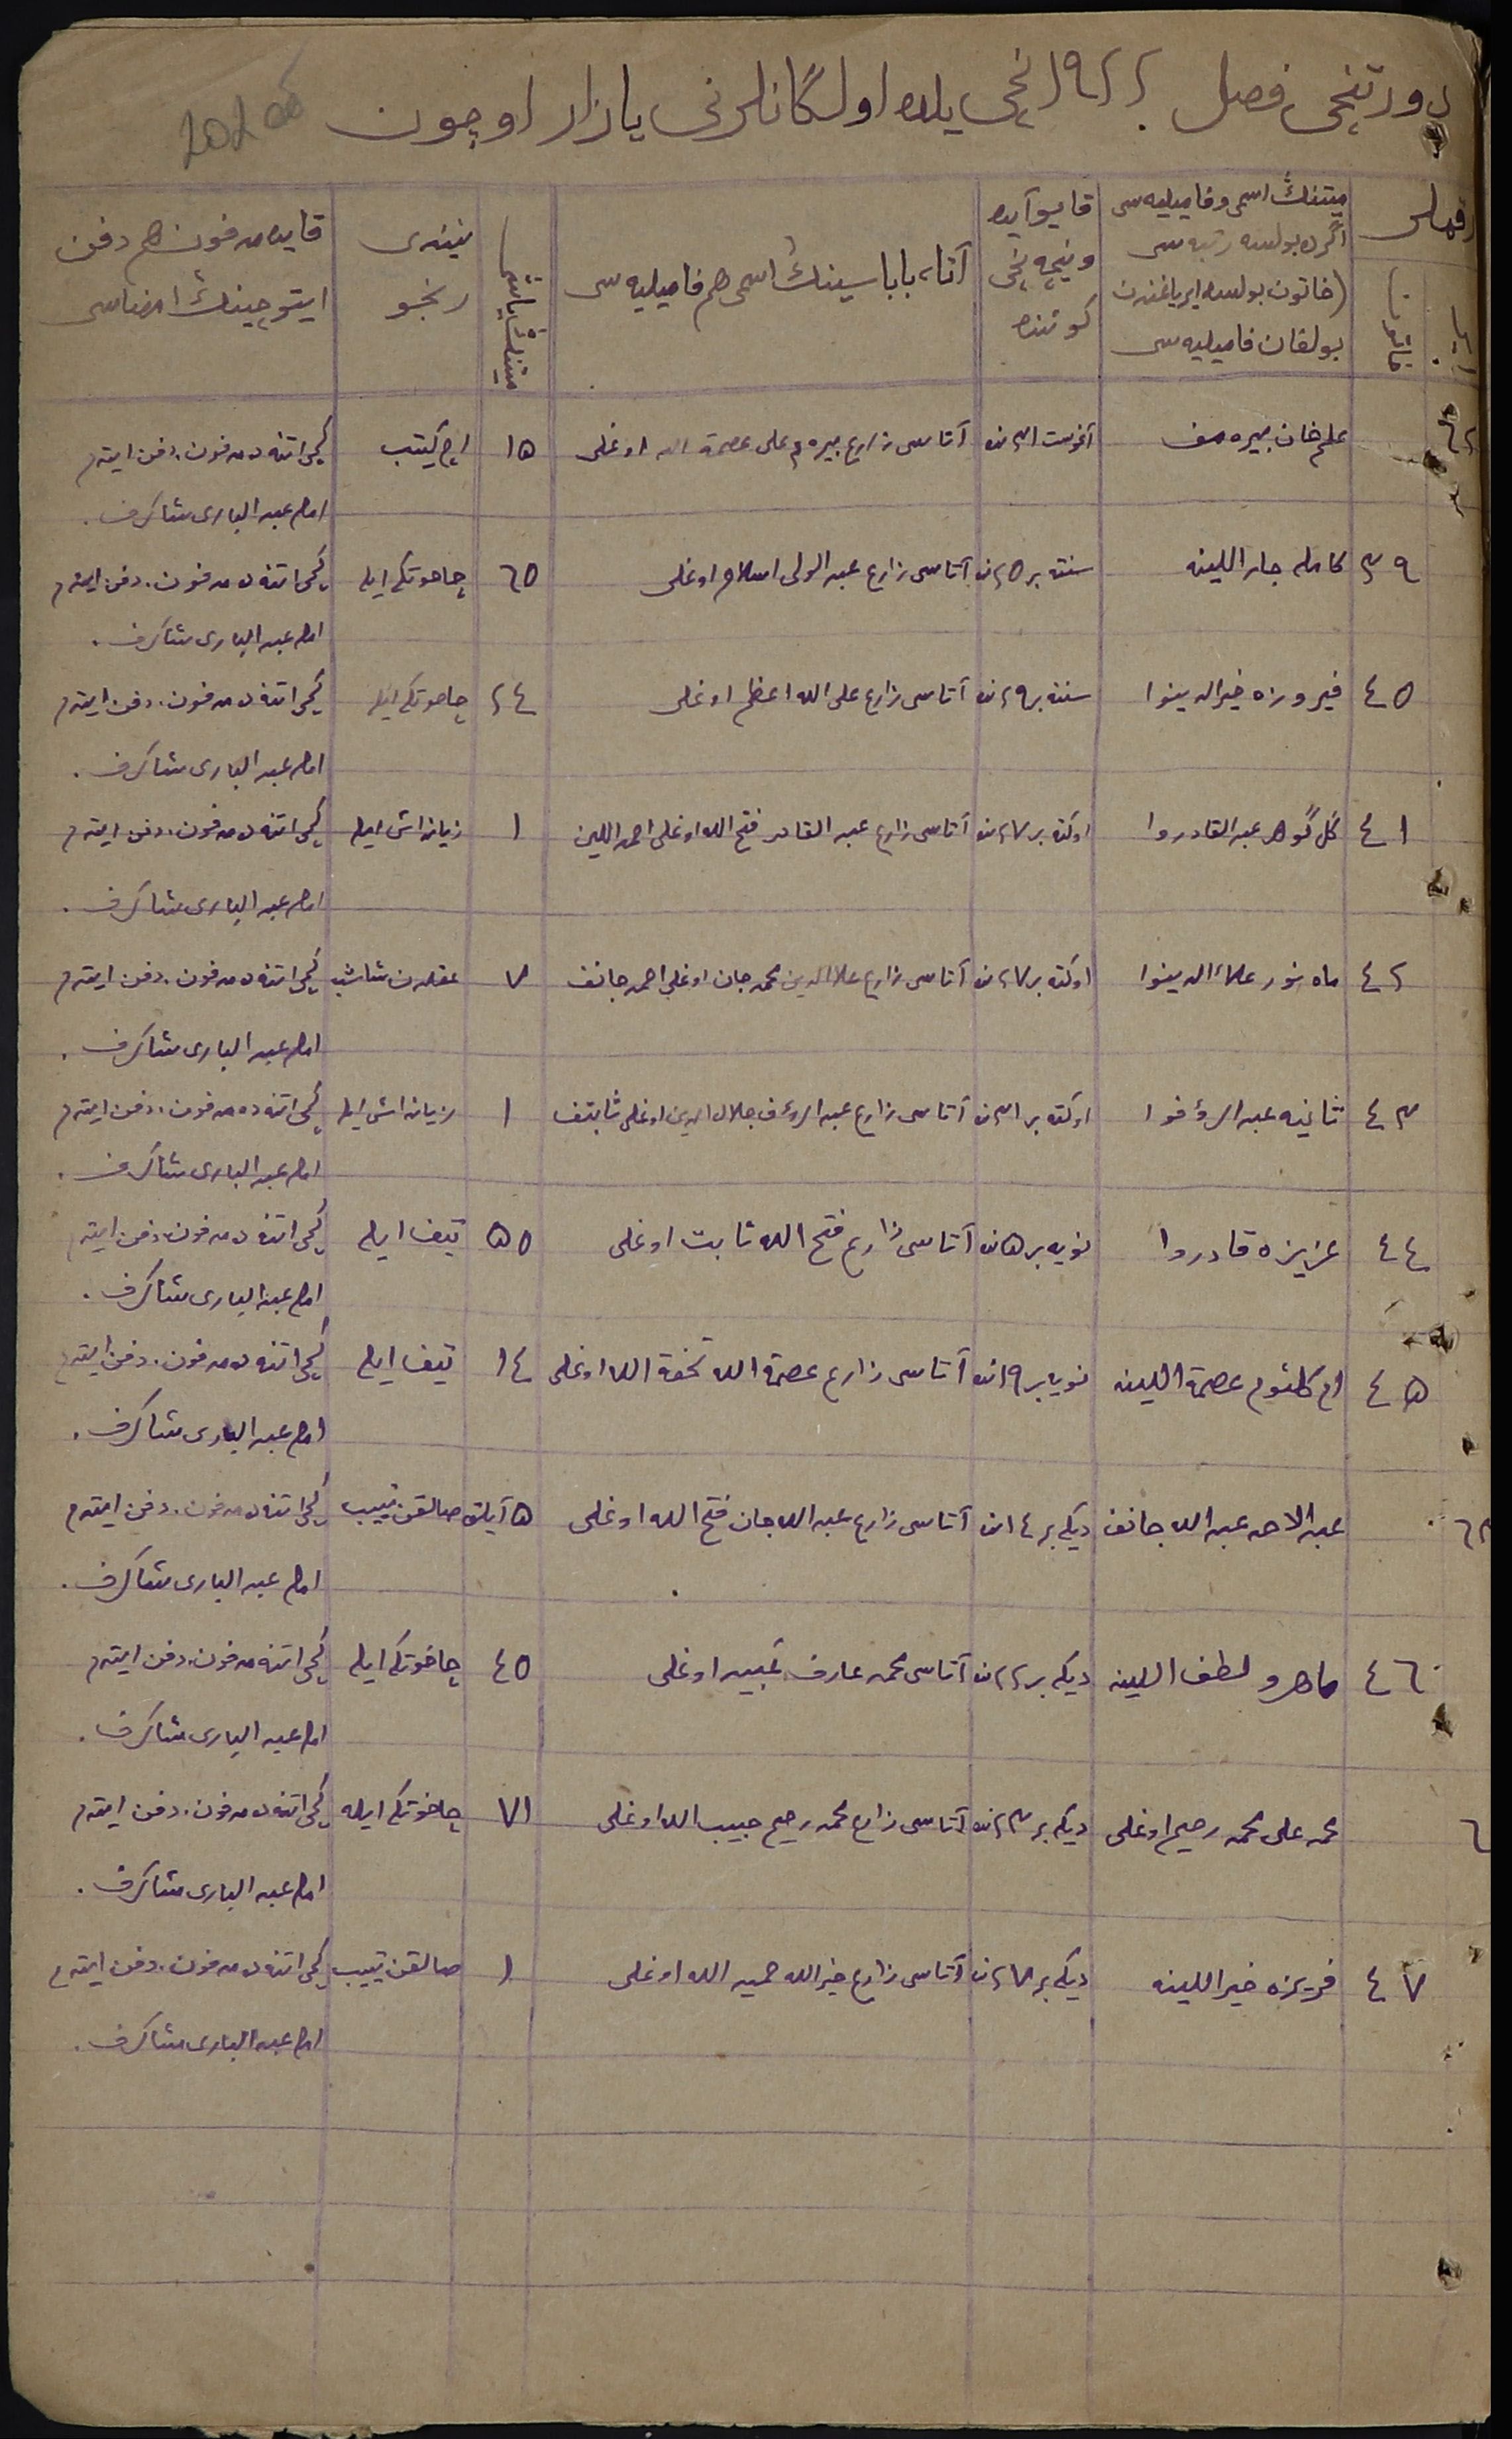 دورتنچی فصل ۱۹۲۲ نچی یلده اولگانلرنی یازار اوچون
رقملر
میتنڭ اسمی وفامیلیه سی
اگرده بولسه رتبه سی
(خاتون بولسه ایر یاغندن
بولغان فامیلیه سی
قایو آیده
ونیچه نچی
کوننده
آتا، باباسینڭ اسمی هم فامیلیه سی
میتنڭ یاشی
نیندی
رنجو
قایده مدفون هم دفن
ایتوچینڭ امضاسی
علم خان بیره مف آغوست ۳۱ ان آتاسی زارع بیرم علی عصمة الله اوغلی ۱۵ اچ کیتب کچی اتنه ده مدفون. دفن ایتدم
امام عبد الباری شاکرف.
۳۹ کامله جار اللینه سنتهبر ۲۵ ان آتاسی زارع عبد الولی اسلام اوغلی ٦٥ چاحوتکه ایله کچی اتنه ده مدفون. دفن ایتدم
امام عبد الباری شاکرف.
٤٠ فیروزه خیر الدینوا سنتهبر ۲۹ ان آتاسی زارع علی الله اعظم اوغلی ٢٤ چاحوتکه ایله کچی اتنه ده مدفون. دفن ایتدم
امام عبد الباری شاکرف.
٤١ گل گوهر عبد القادروا اوکتهبر ۲۷ ان آتاسی زارع عبد القادر فتح الله اوغلی احمد اللین ۱ زیانداش ایله کچی اتنه ده مدفون. دفن ایتدم
امام عبد الباری شاکرف.
٤٢ ماه نور علاء الدینوا اوکتهبر ۲۷ ان آتاسی زارع علا الدین محمد جان اوغلی احمد جانف ۷ عقلدن شاشب کچی اتنه ده مدفون. دفن ایتدم
امام عبد الباری شاکرف.
٤٣ ثانیه عبد الرؤفوا اوکتهبر ۳۱ ان آتاسی زارع عبد الرؤف جلال الدین اوغلی ثابتف ۱ زیانداش ایله کچی اتنه ده مدفون. دفن ایتدم
امام عبد الباری شاکرف.
٤٤ عزیزه قادروا نویهبر ۵ ان آتاسی زارع فتح الله ثابت اوغلی ٥٥ تیف ایله کچی اتنه ده مدفون. دفن ایتدم
امام عبد الباری شاکرف.
٤٥ ام کلثوم عصمة اللینه نویهبر ۱۹ ان آتاسی زارع عصمة الله تحفة الله اوغلی ١٤ تیف ایله کچی اتنه ده مدفون. دفن ایتدم
امام عبد الباری شاکرف.
عبد الاحد عبد الله جانف دیکهبر ١٤ ان آتاسی زارع عبد الله جان فتح الله اوغلی ٥ آیلق صالقن تییب کچی اتنه ده مدفون. دفن ایتدم
امام عبد الباری شاکرف.
٤٦ ماهرو لطف اللینه دیکهبر ۲۲ ان آتاسی محمد عارف عبید اوغلی ٤٥ چاخوتکه ایله کچی اتنه مدفون. دفن ایتدم
امام عبد الباری شاکرف.
محمد علی محمد رحیم اوغلی دیکهبر ۲۳ ان آتاسی زارع محمد رحیم حبیب الله اوغلی ۷۱ چاخوتکه ایله کچی اتنه ده مدفون. دفن ایتدم
امام عبد الباری شاکرف.
٤٧ فریزه خیر اللینه دیکهبر ۲۷ ان آتاسی زارع خیر الله حمید الله اوغلی ۱ صالقن تییب کچی اتنه ده مدفون. دفن ایتدم
امام عبد الباری شاکرف.